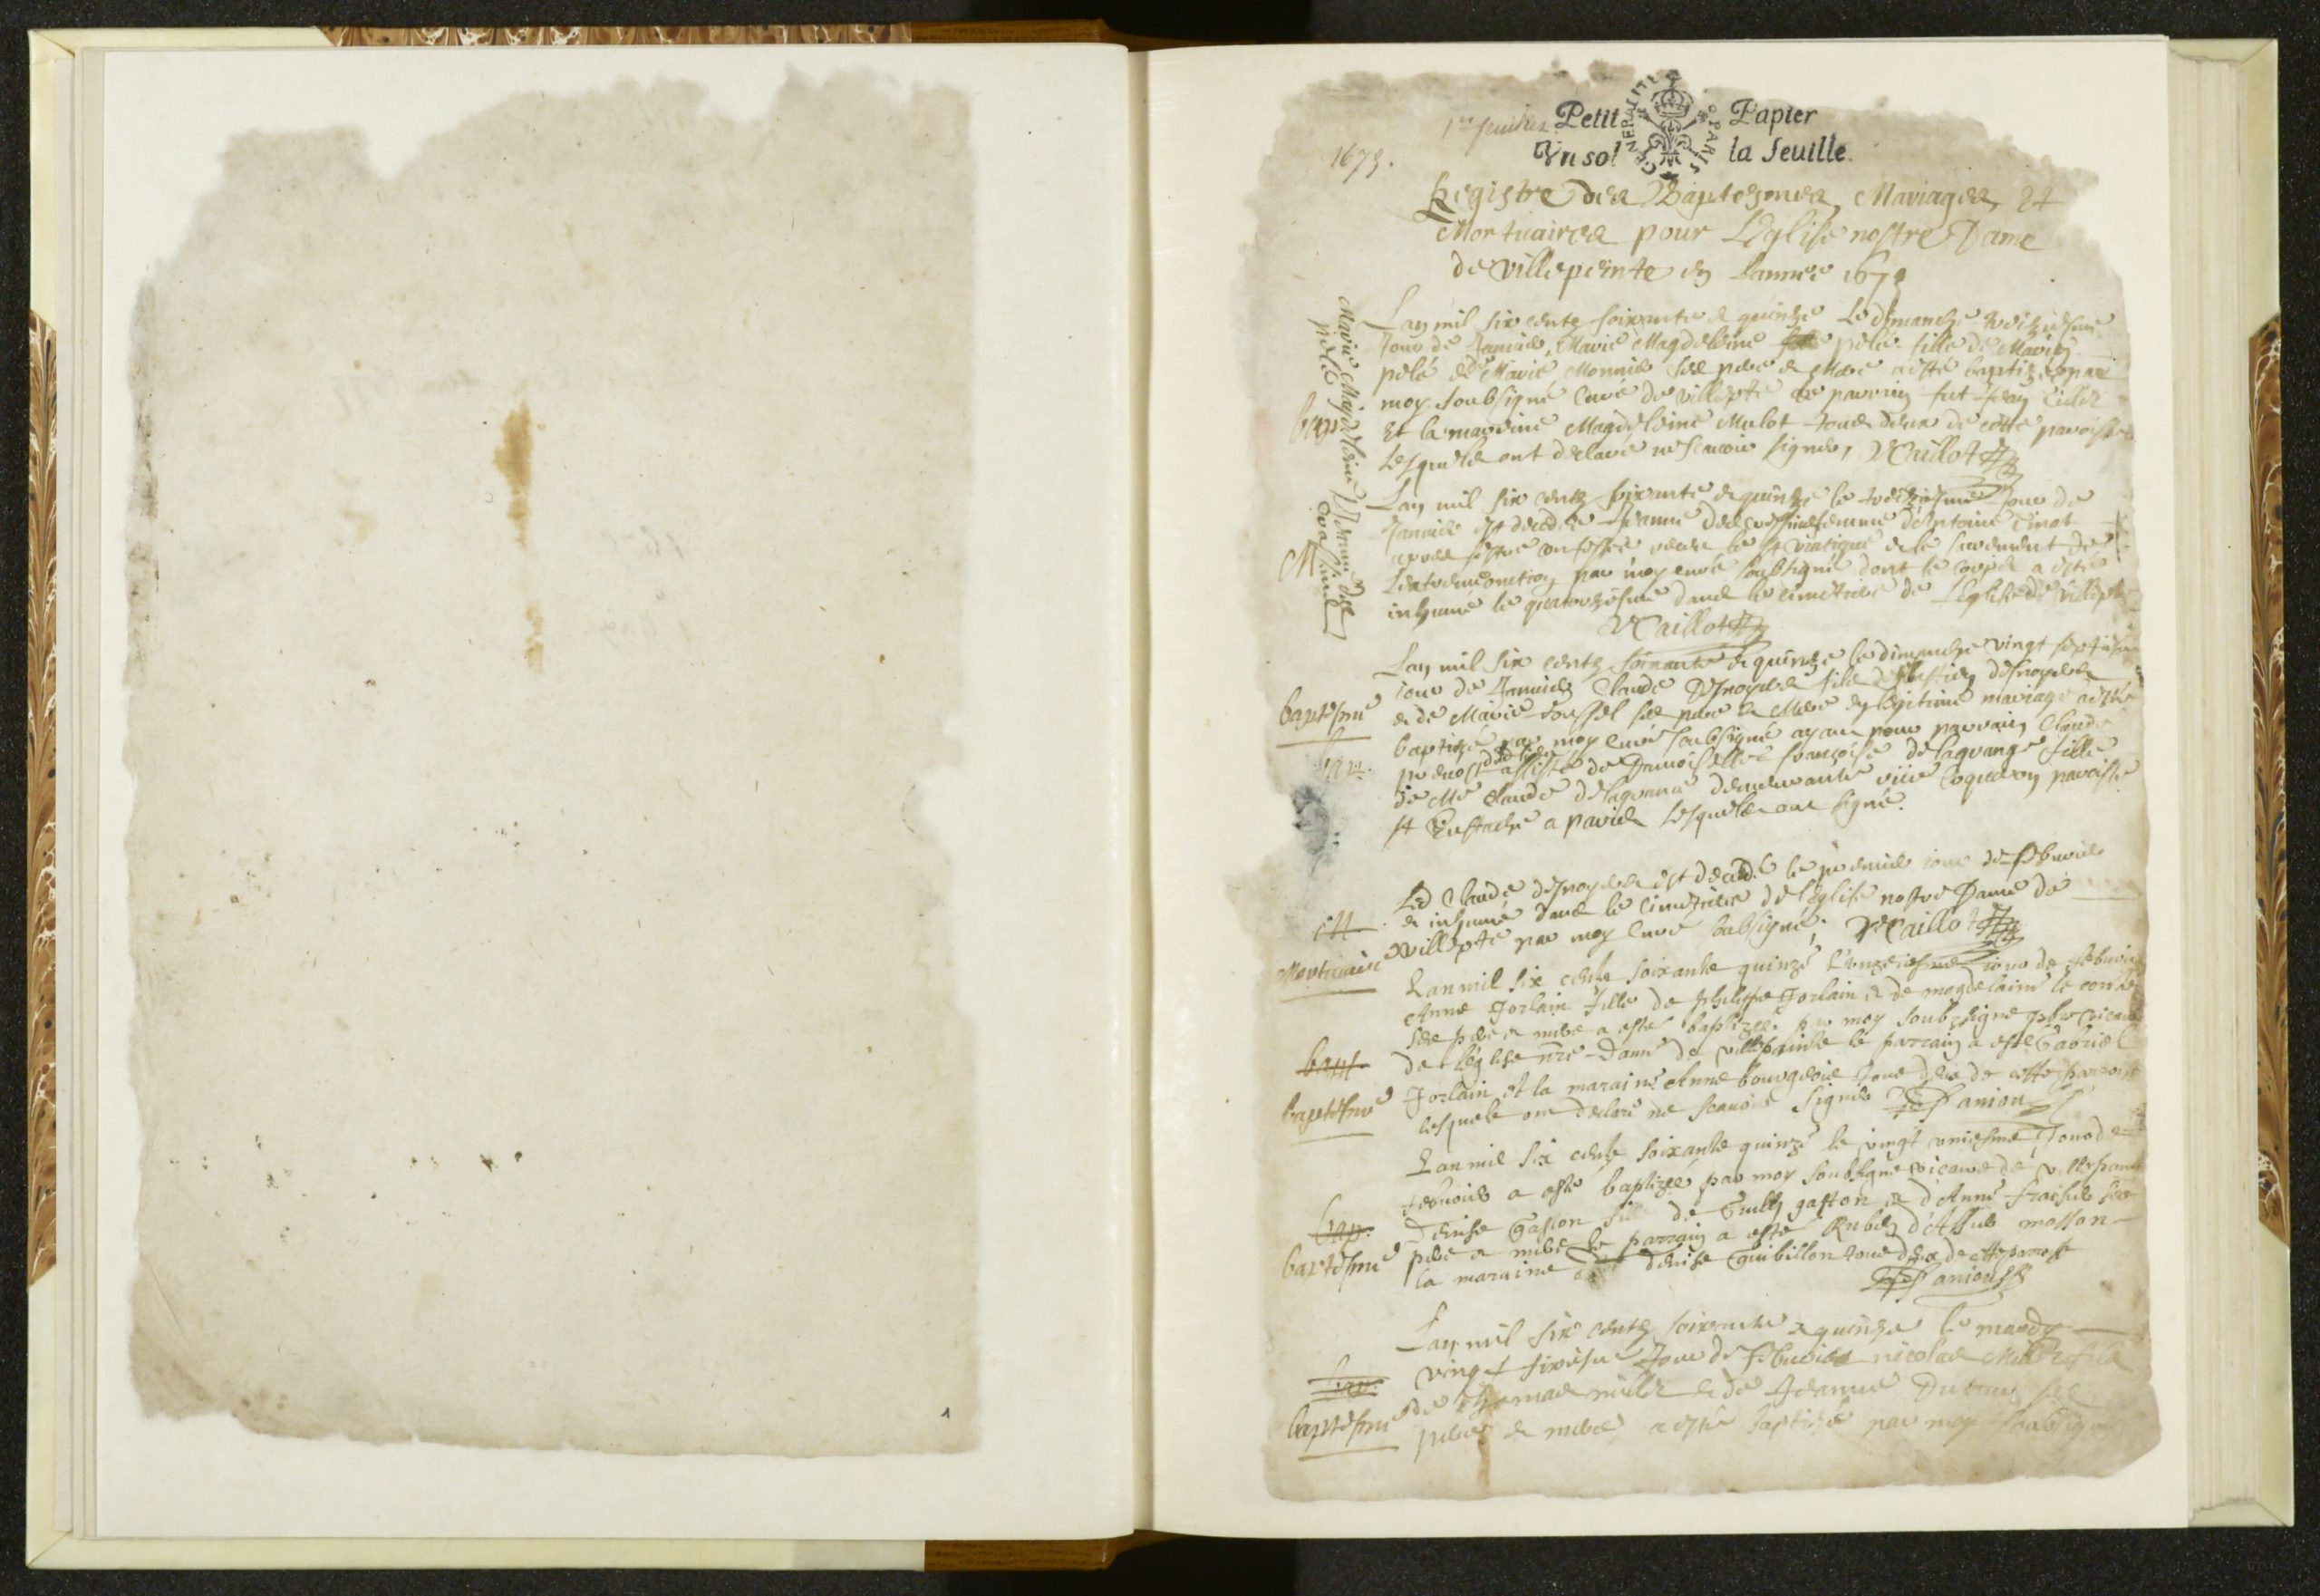 1er feuillet Petit Papier
1675. Vn sol la feuille.
GENERALITE D PARIS
Registre des Baptesmes, Mariages, et
Mortuaires pour L'Eglise nostre Dame
de Villepeinte en L'année 1675
Marie Magdeleine
pelé
Jeanne des
L'an mil six cents soixante & quinze Le dimanche treiziesme
Jour de Januier, Marie Magdeleine pelé fille de Marin
pelé & de Marie Monnier ses pere & Mere a esté baptizée par
moy soubsigné Curé de Villepte le parrein fut Jean
bap
Et la mareine Magdeleine Mulot tous deux de cette paroisse
Lesquels ont declaré ne scauoir signer, Caillot
L'an mil six cents soixante & quinze le treiziesme jour de
Januier est decedée Jeanne femme d'Antoine Cinot
M
apres s'estre confessée receu le st viatique & le sacrement de
L'extremeonction par moy curé soubsigné dont le corps a esté
inhumé le quatorziesme dans le cimetiere de L'eglise de Villepte
Caillot
L'an mil six cents soixante & quinze le dimanche vingt septiesme
iour de Januier Claude Desnoyers fils de desnoyers
baptesme
& de Marie Roussel ses pere & Mere en legitime mariage a esté
baptizé par moy curé soubsigné ayant pour parrain Claude
bap.
preuost assisté de Damoiselle françoise delagrange fille
de Me Claude delagrange demeurante rüe Coqueron paroisse
st Eustache a paris Lesquels ont signé.
Led Claude desnoyers est decedé le premier iour de feburier
M
& inhumé dans le cimetiere de l'Eglise nostre Dame de
Mortuaire
Villepte par moy curé soubsigné, Caillot
L'an mil six cents soixante quinze L'onzeiesme iour de feburier
Anne Jorlain fille de philippe Jorlain & de magdelaine le conte
ses pere & mere a esté baptizée par moy soubzsigné pbre vicaire
bapt
de l'eglise nre Dame de villepainte le parrain a esté Gabriel
baptesme
Jorlain et la maraine Anne bourgeois tous deux de cette parroisse
lesquels ont declaré ne scauoir signer anjou
L'an mil six cents soixante quinze le vingt uniesme Jour de
feburier a esté baptizée par moy soubsigné vicaire de villepainte
bap.
Denise Gaston fille de Guille gaston & d'Anne ses
baptesme
pere & mere le parrain a esté
la maraine Denise Guibillon tous deux de cette parroisse
anjou
L'an mil six cents soixante & quinze le mardy
vingt sixiesme Jour de feburier nicolas fils
bap.
de thomas & de Jeanne ses
baptesme
pere & mere a esté baptizé par moy soubsigné
1